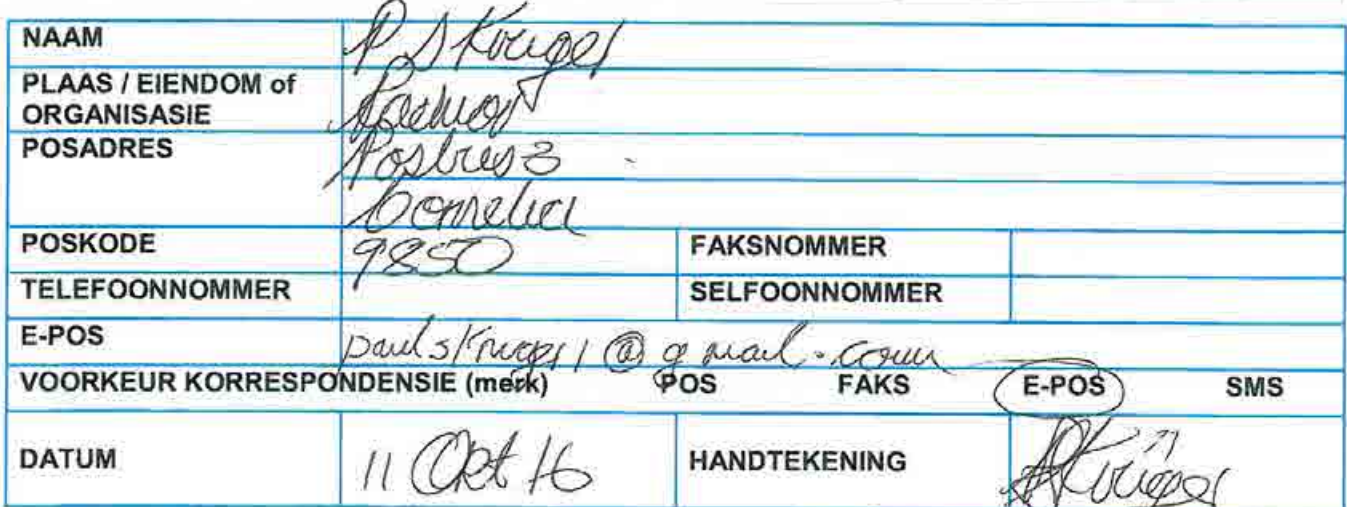 NAAM P S Kruger
PLAAS / EIENDOM of
ORGANISASIE
POSADRES Posbus 3
Cornelia
POSKODE 9850 FAKSNOMMER
TELEFOONNOMMER SELFOONNOMMER
E-POS paulskruger1@gmail.com
VOORKEUR KORRESPONDENSIE (merk) POS FAKS E-POS SMS
DATUM 11 Okt 16 HANDTEKENING Krüger